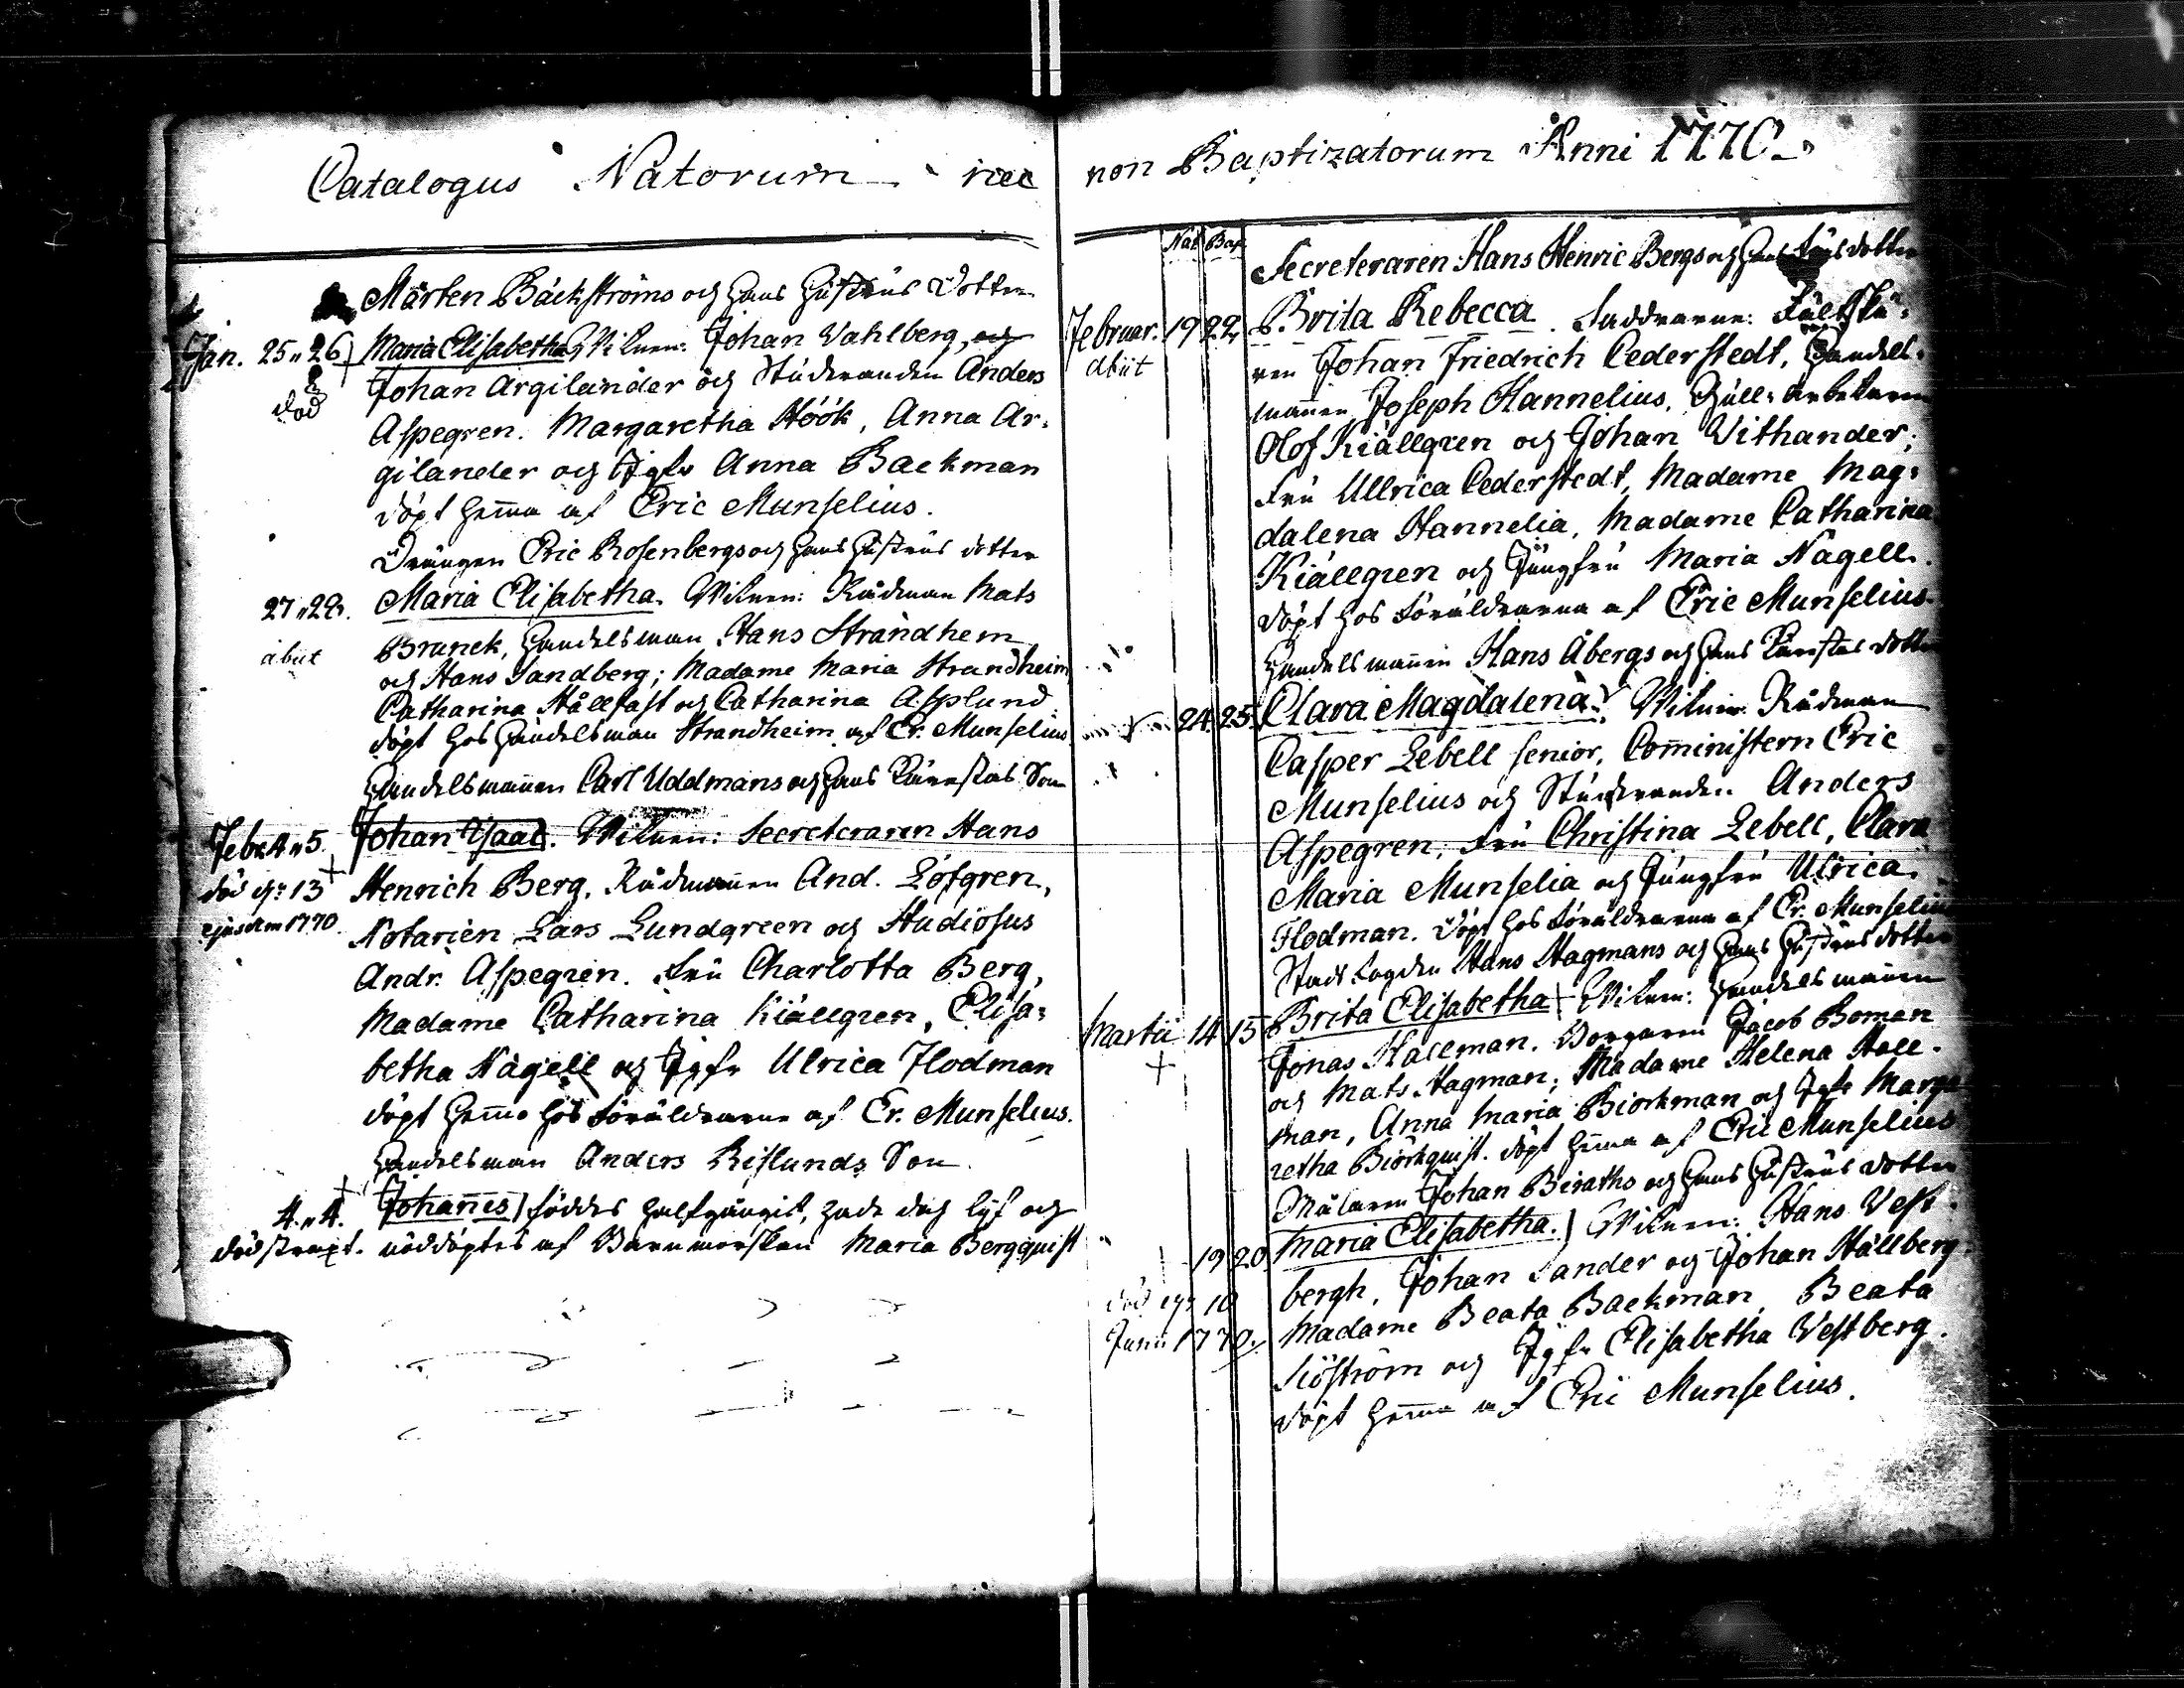 Catalogus Natorum nec non Baptizatorum Anni 1770
Mårten Bäckströms och hans hustrus dotter
Jan. 25 26 Maria Elisabetha, Witnen: Johan Wahlberg, och
död Johan Argilander och Studeranden Anders
Aspegren. Margaretha Höök, Anna Ar-
gilander och Jgfr Anna Backman
döpt hemma af Eric Munselius.
Drängen Eric Rosenbergs och hans hustrus dotter
27 28. Maria Elisabetha. Witnen: Rådman Mats
abiit Brunck, Handelsman Hans Strandhem
och Hans Sandberg; Madame Maria Strandheim
Catharina Hållfast och Catharina Asplund
döpt hos Handelsman Strandheim af Er. Munselius
Handelsmannen Carl Uddmans och hans Kärestas Son
Febr. 4 5. Johan Isaac. Witnen: Secreteraren Hans
död 13 Henrich Berg, Rådmannen And. Löfgren,
ejusdem 1770. Notarien Lars Lundgreen och Studiosus
Andr. Aspegren. Fru Charlotta Berg,
Madame Catharina Kiällgren, Elisa-
betha Nagell och Jgfr Ulrica Flodman
döpt hemma hos Föräldrarne af Er. Munselius.
Handelsman Anders Rislunds Son
4. 4. Johannes föddes halfgångit, hade dock lif och
nöddöptes af Barnmorskan Maria Bergquist
Nat Bap
Secreteraren Hans Henric Bergs och hans Frus dotter
Februar. 19 22 Brita Rebecca. Faddrarne: Fältskä-
abiit ren Johan Friedrich Cederstedt, Handels-
mannen Joseph Hannelius, Gull-Arbetaren
Olof Kiällgren och Johan Vithander;
Fru Ullrica Cederstedt, Madame Mag-
dalena Hannelia, Madame Catharina
Kiällgren och Jungfru Maria Nagell.
döpt hos Föräldrarna af Eric Munselius.
Handelsmannen Hans Åbergs och hans Kärestas dotter
24 25 Clara Magdalena. Witnen: Rådman
Casper Lebell senior, Comministern Eric
Munselius och Studeranden Anders
Aspegren; Fru Christina Lebell, Clara
Maria Munselia och Jungfru Ulrica
Flodman. Döpt hos Föräldrarna af Er. Munselius
Stads Fogden Hans Hagmans och hans hustrus dotter
Martii 14 15 Brita Elisabetha Witnen: Handelsmannen
Jonas Hallman. Borgaren Jacob Boman
och Mats Hagman; Madame Helena Hall-
man, Anna Maria Biörkman och Jgfr Marga
retha Biörkquist. döpt hemma af Eric Munselius
Målaren Johan Beraths och hans hustrus dotter
19 20 Maria Elisabetha. Witnen: Hans Vest-
bergh, Johan Sander och Johan Hällberg.
död 10 Madame Beata Backman, Beata
Junii 1770. Siöström och Jgfr Elisabetha Vestberg.
döpt hemma af Eric Munselius.